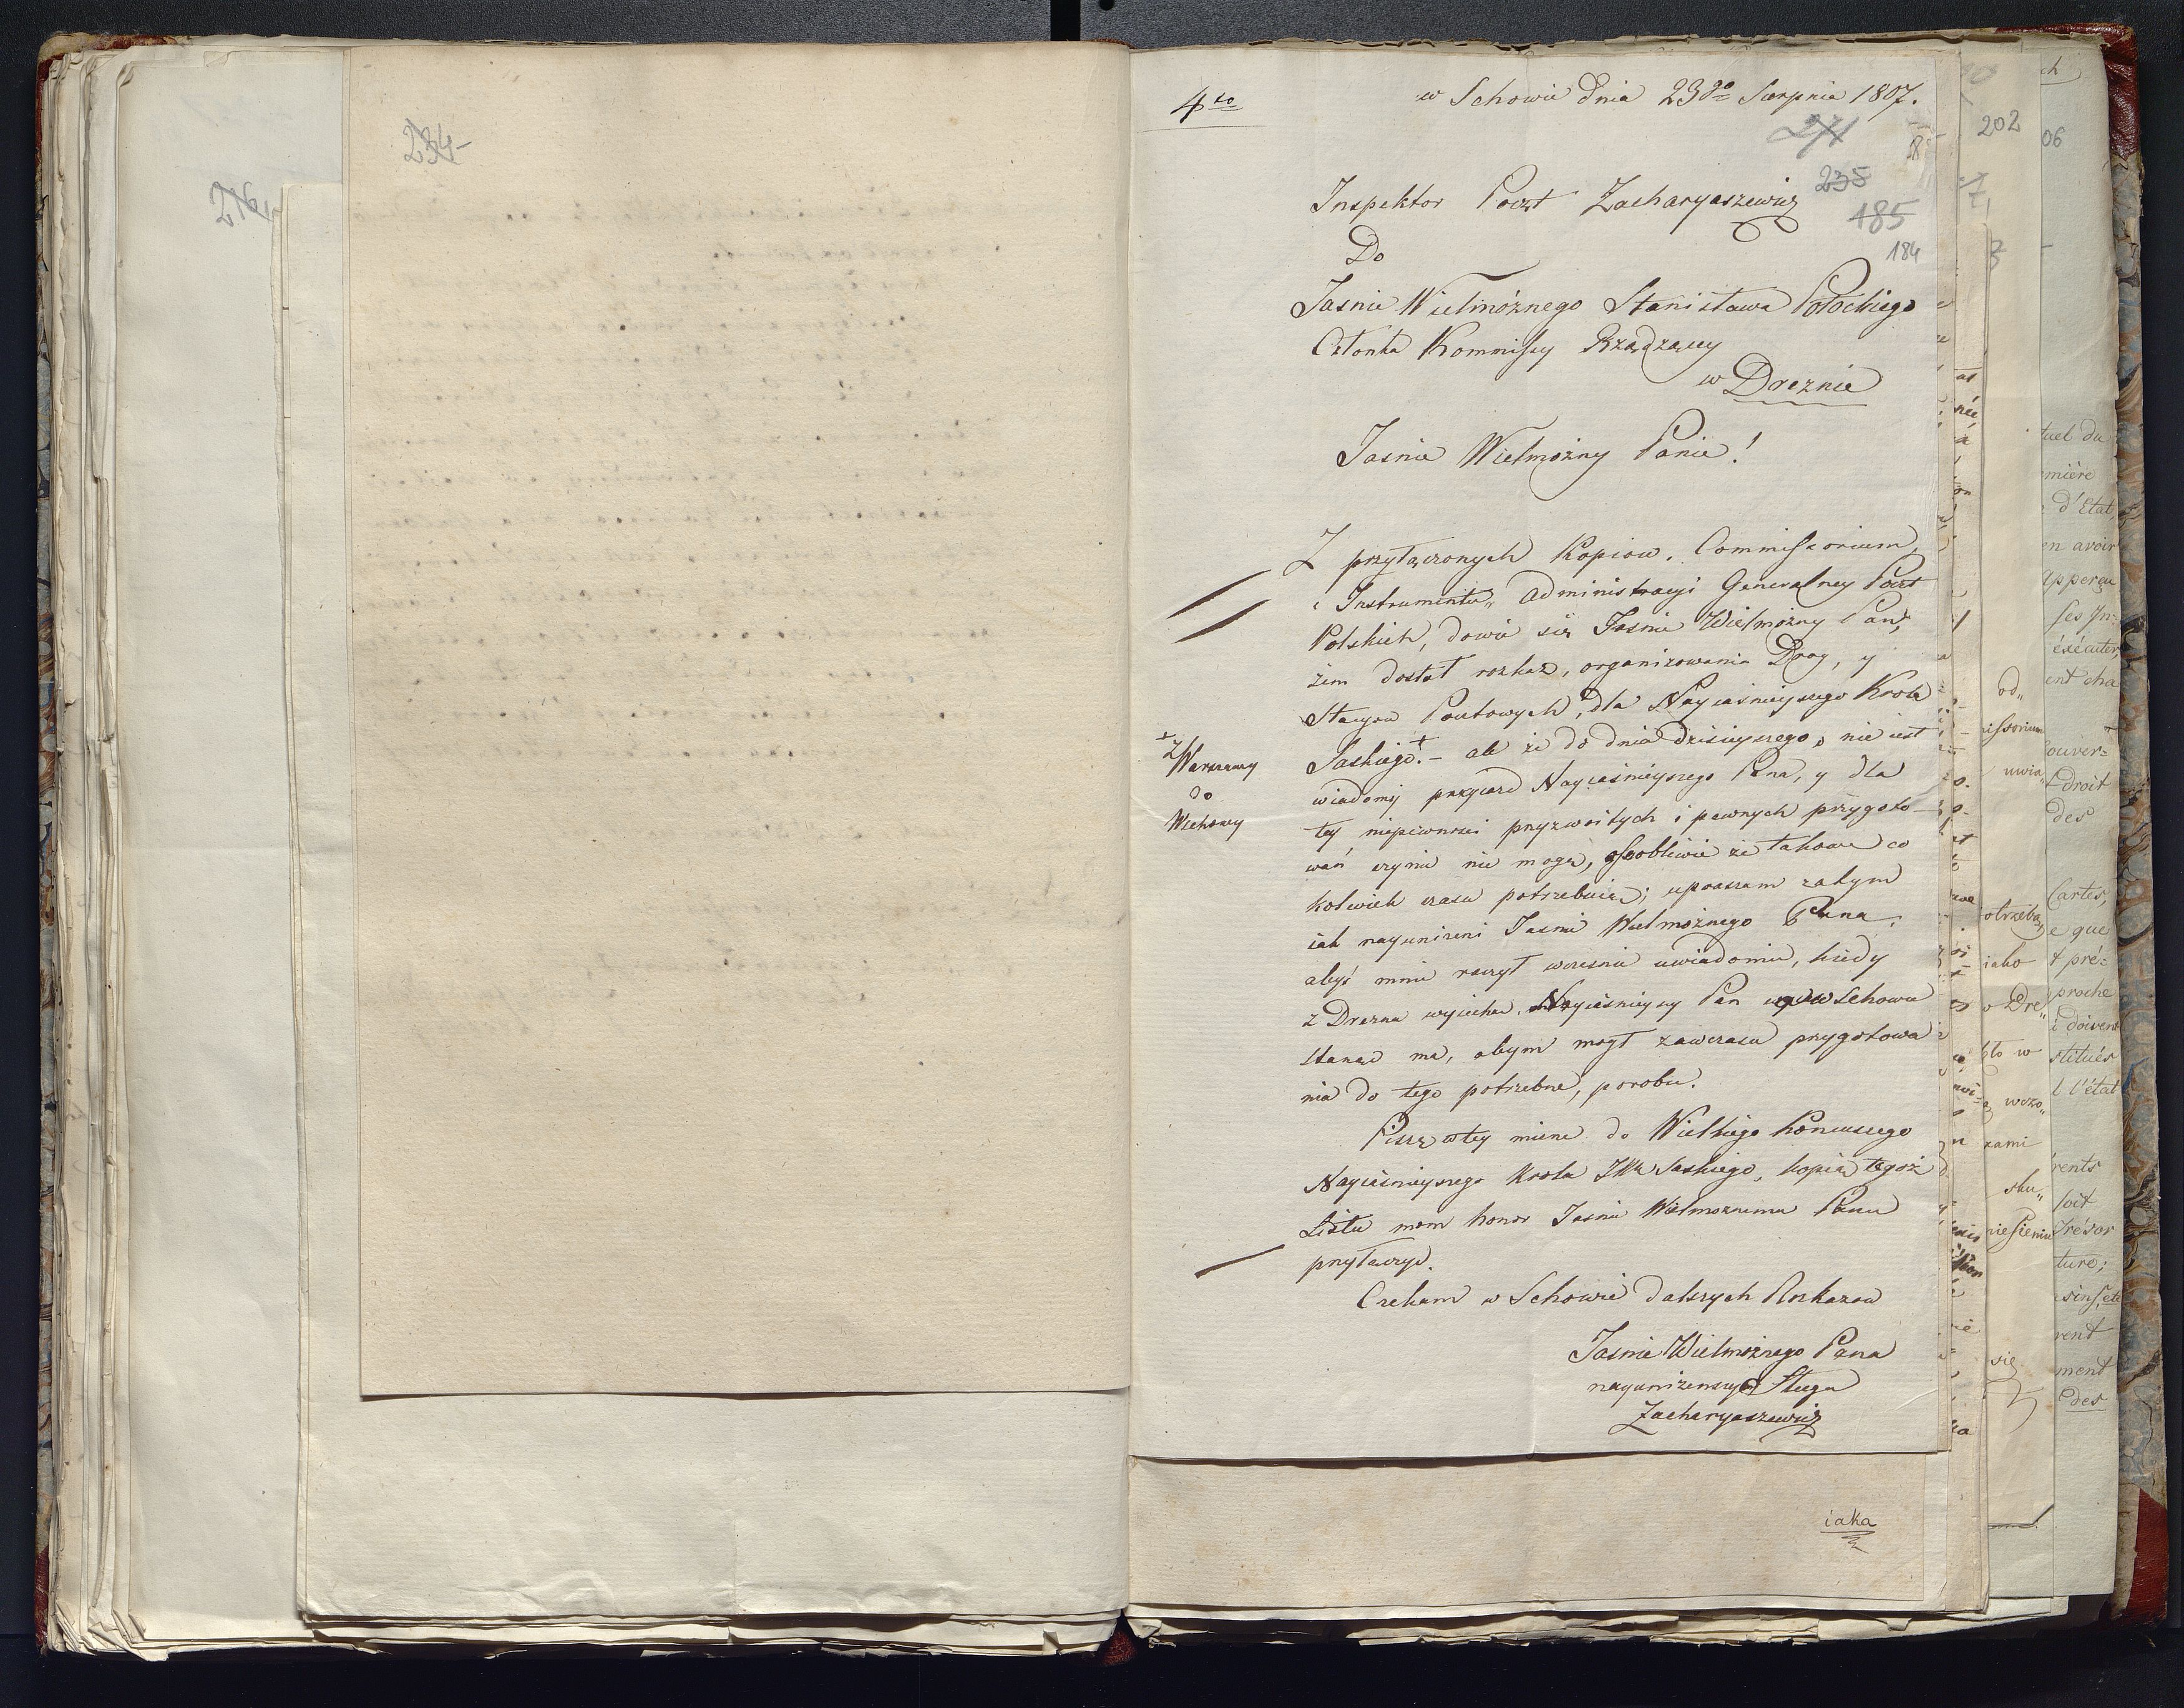 234
216
4to
w Schowie dnia 23go Sierpnia 1807.
271
18
235
185
184
Inspektor Poczt Zacharyaszewicz
Do
Jasnie Wielmożnego Stanisława Potockiego
Członka Kommissyi Rządzącey
w Dreznie
Jasnie Wielmożny Panie!
Z przyłączonych Kopiow, Commissorium,
i Instrumentu„ Administracyi Generalney Poczt
Polskich, dowie się Jasnie Wielmożny Pan,
żem dostał rozkaz, organizowania Drog, y
Stacyow Pocztowych, dla Nayiaśnieyszego Krola
Saskiego. + – ale że do dnia dzisieyszego, nie iest
+ z Warszawy
do
Wschowy
wiadomy przyiazd Nayiaśnieyszego Pana, y dla
tey niepewności przyzwoitych i pewnych przygoto-
wań czynić nie mogę, osobliwie że takowe co
kolwiek czasu potrzebuią; upraszam zatym
iak nayuniżeni Jasnie Wielmożnego Pana,
abyś mnie raczył wcześnie uwiadomić, kiedy
z Drezna wyiecha, Nayiaśnieyszy Pan w Schowie
stanąć ma, abym mogł zawczasu przygotowa
nia do tego potrzebne, porobić.
Piszę w tey mierze do Wielkiego Koniuszego
Nayiaśnieyszego Krola JMci Saskiego, kopią tegoż
Listu mam honor Jasnie Wielmożnemu Panu
przyłączyć.
Czekam w Schowie dalszych Rozkazow
Jasnie Wielmożnego Pana
nayuniżenszym Sługa
Zacharyaszewicz
iaka
202
06
tuel du
mière
d'Etat,
en avoir
apperçu
ses In-
éxécuter,
ent cha
od„
issorium
ouver=
uwia„
droit
des
Cartes,
otrzeba,
e que
iako
t pré=
proche
o Dre„
i doivent
to w
stitués
l l'état
wczo„
zami
rents
sku„
soit
niesieniu
Trésor
ture;
rent
się
ment
des